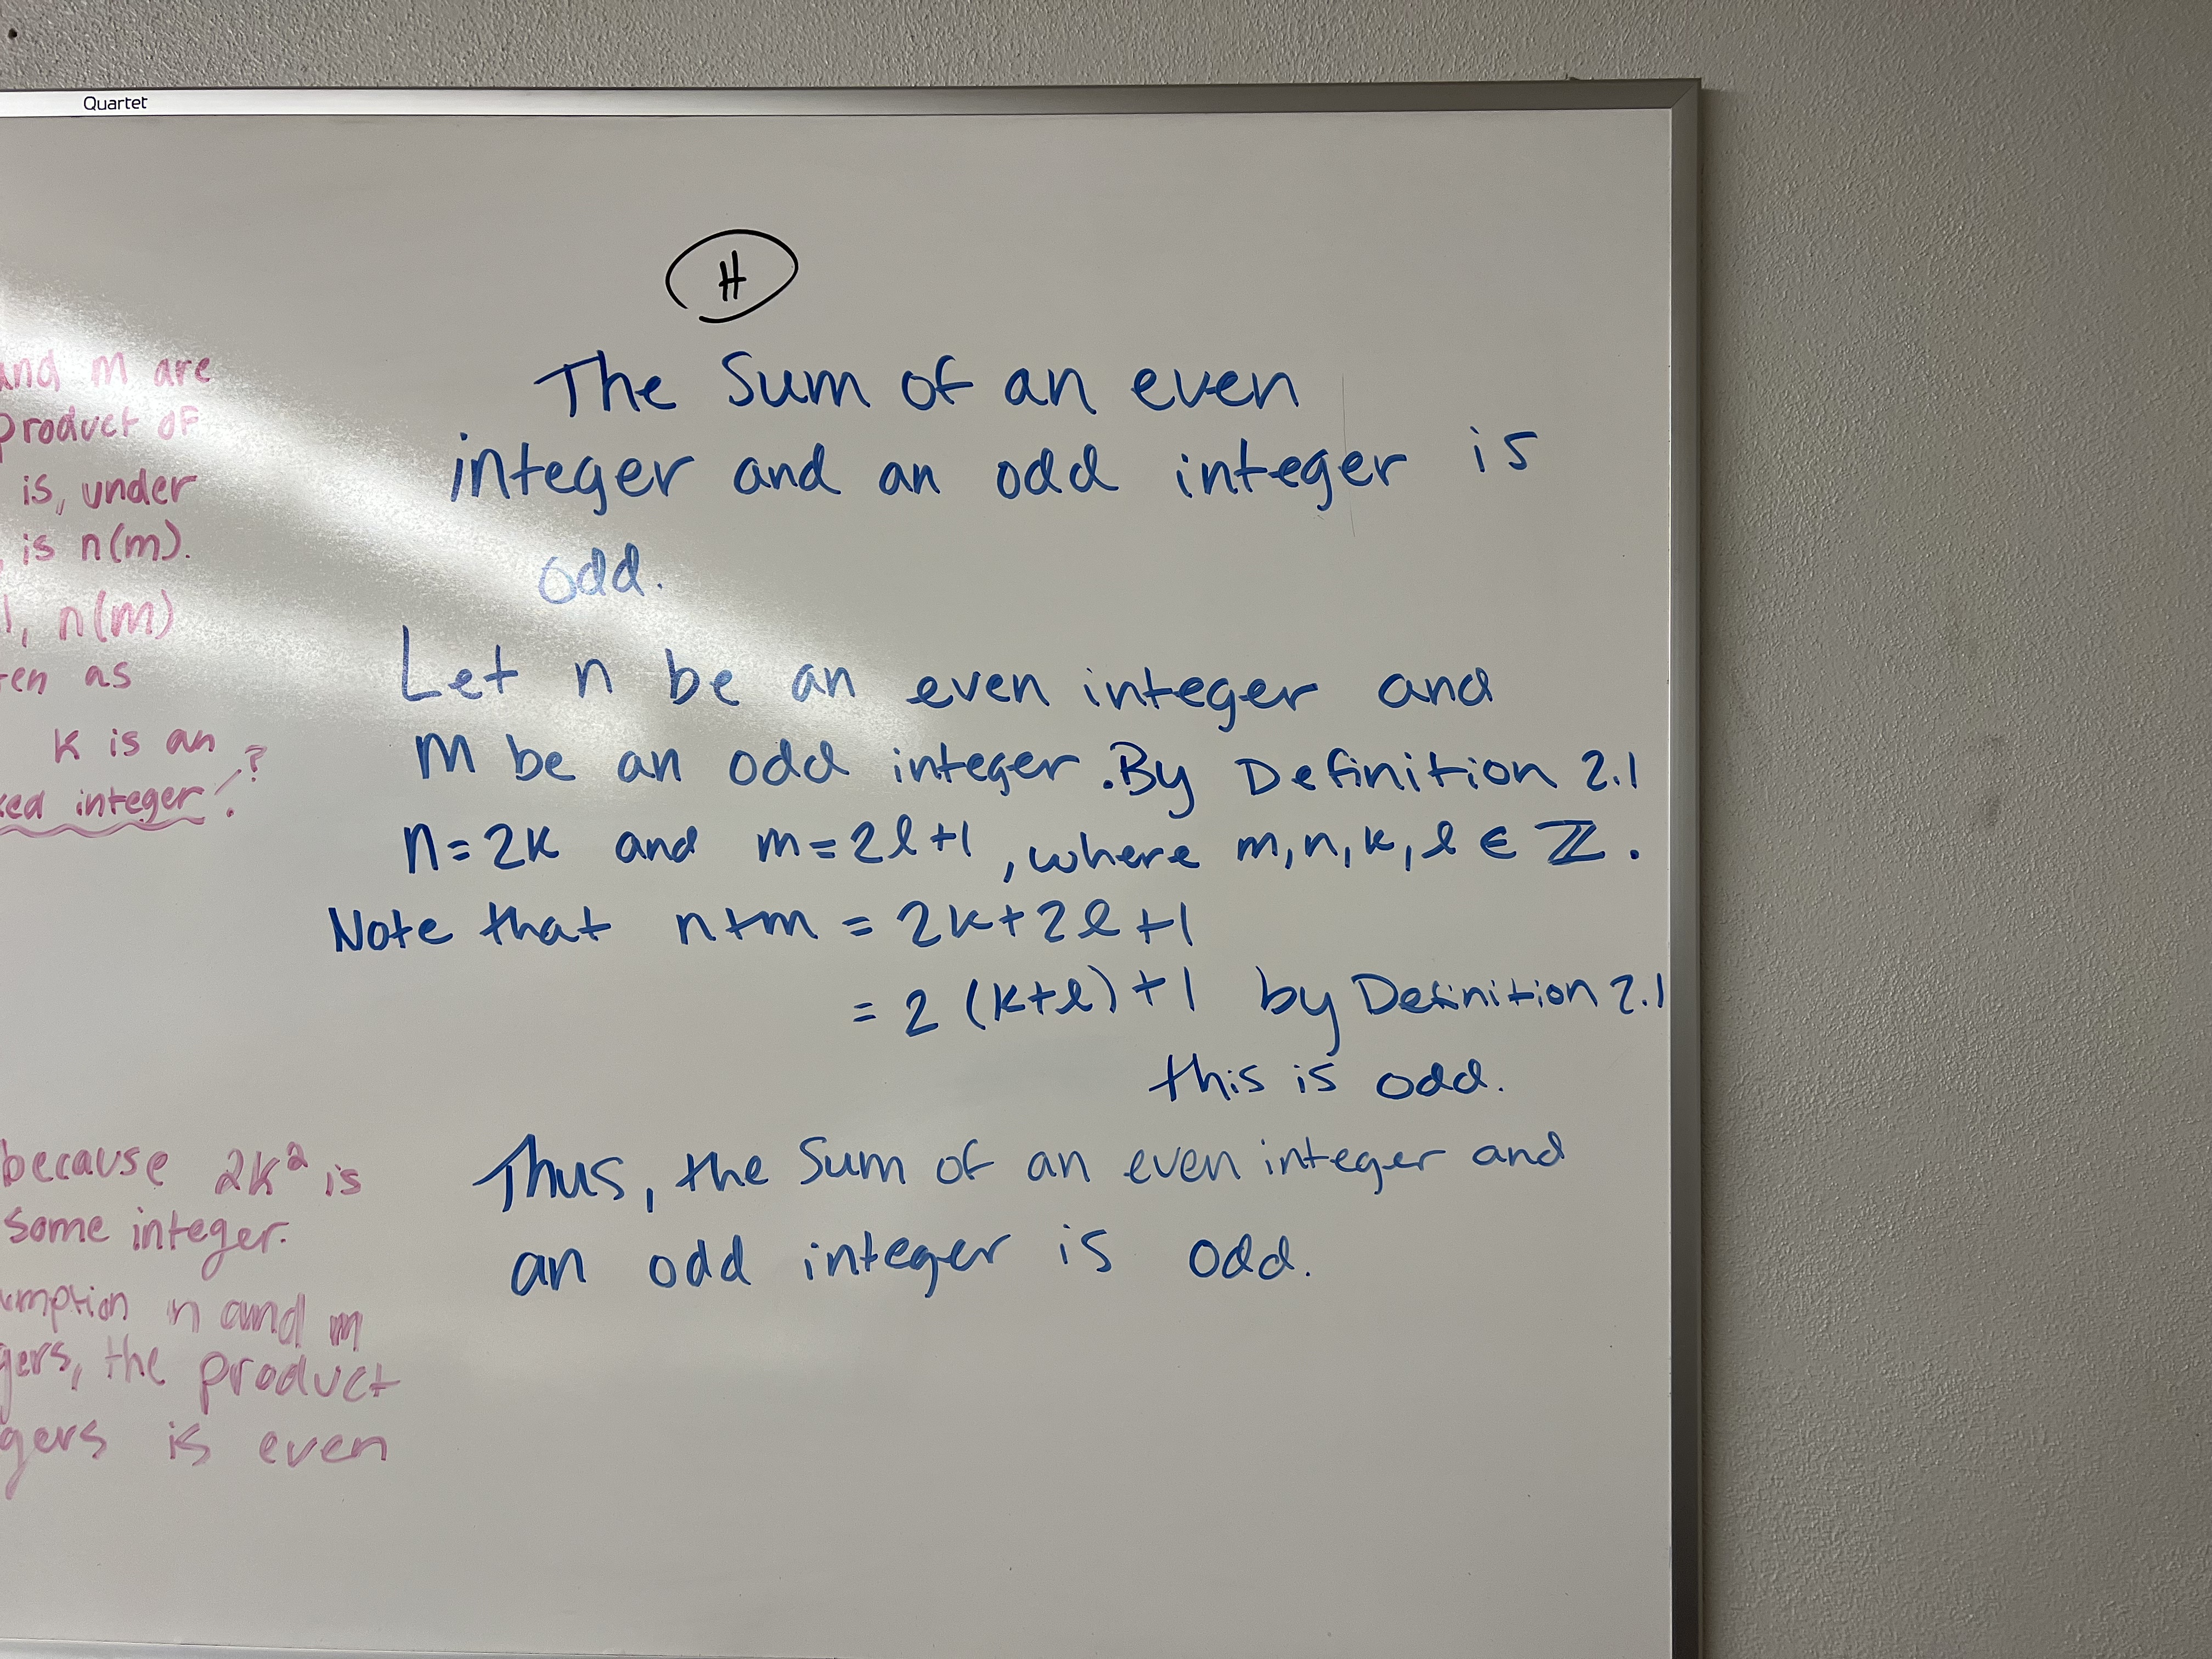 Quartet
and m are
product of
is, under
is n(m).
1, n(m)
as
k is an
integer. ?
because 2k² is
some integer.
n and m
the product
is even
H
The Sum of an even
integer and an odd integer is
odd.
Let n be an even integer and
m be an odd integer. By Definition 2.1
n=2k and m=2l+1, where m,n,k,l ∈ ℤ.
Note that n+m = 2k+2l+1
= 2(k+l)+1 by Definition 2.1
this is odd.
Thus, the Sum of an even integer and
an odd integer is odd.